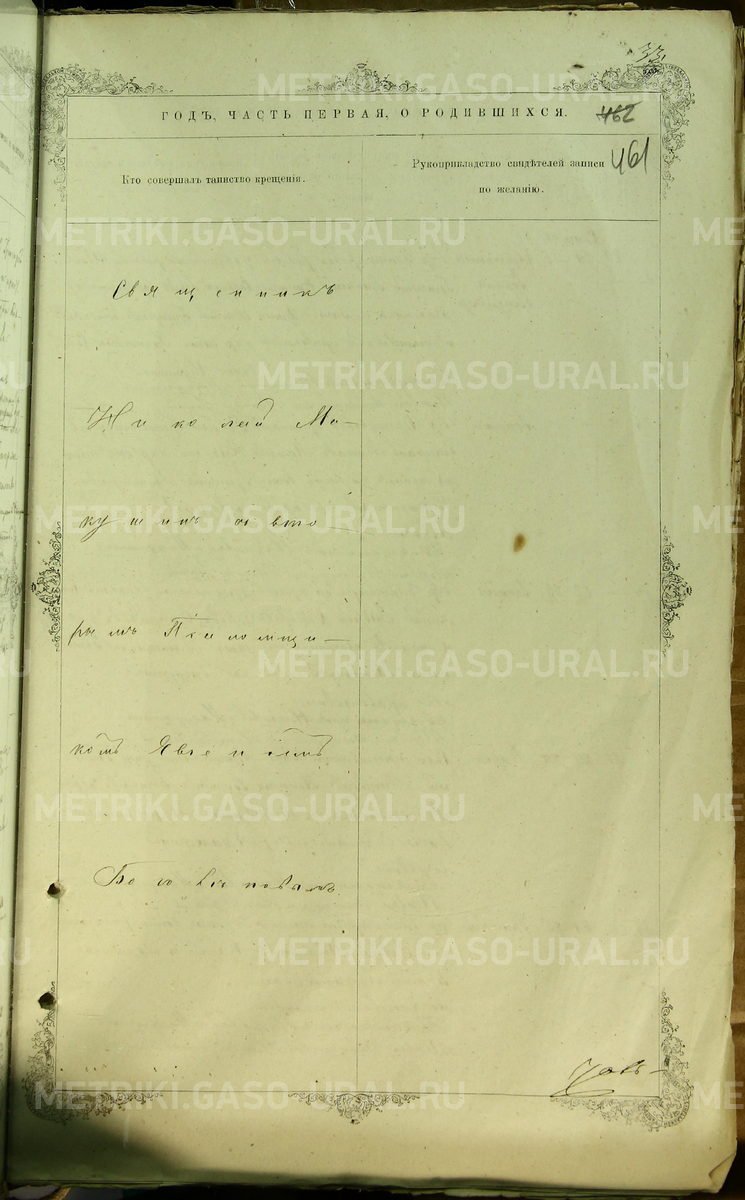 ГОДЪ, ЧАСТЬ ПЕРВАЯ, О РОДИВШИХСЯ.
462
461
Кто совершалъ таинство крещенія.
Рукоприкладство свидѣтелей записи
по желанію.
Священникъ
Николай Ма-
кушинъ съ вто-
рымъ Псаломщи-
комъ
METRIKI.GASO-URAL.RU